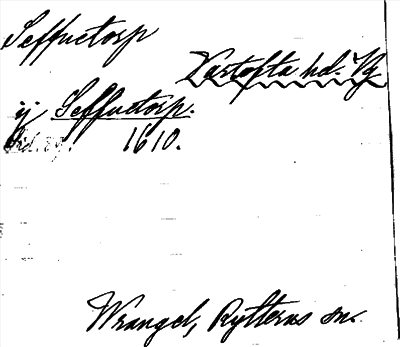 Seffnetorp
Vartofta hd. Vg
ij Seffnetorp.
1610.
Wrangel, Rytterns